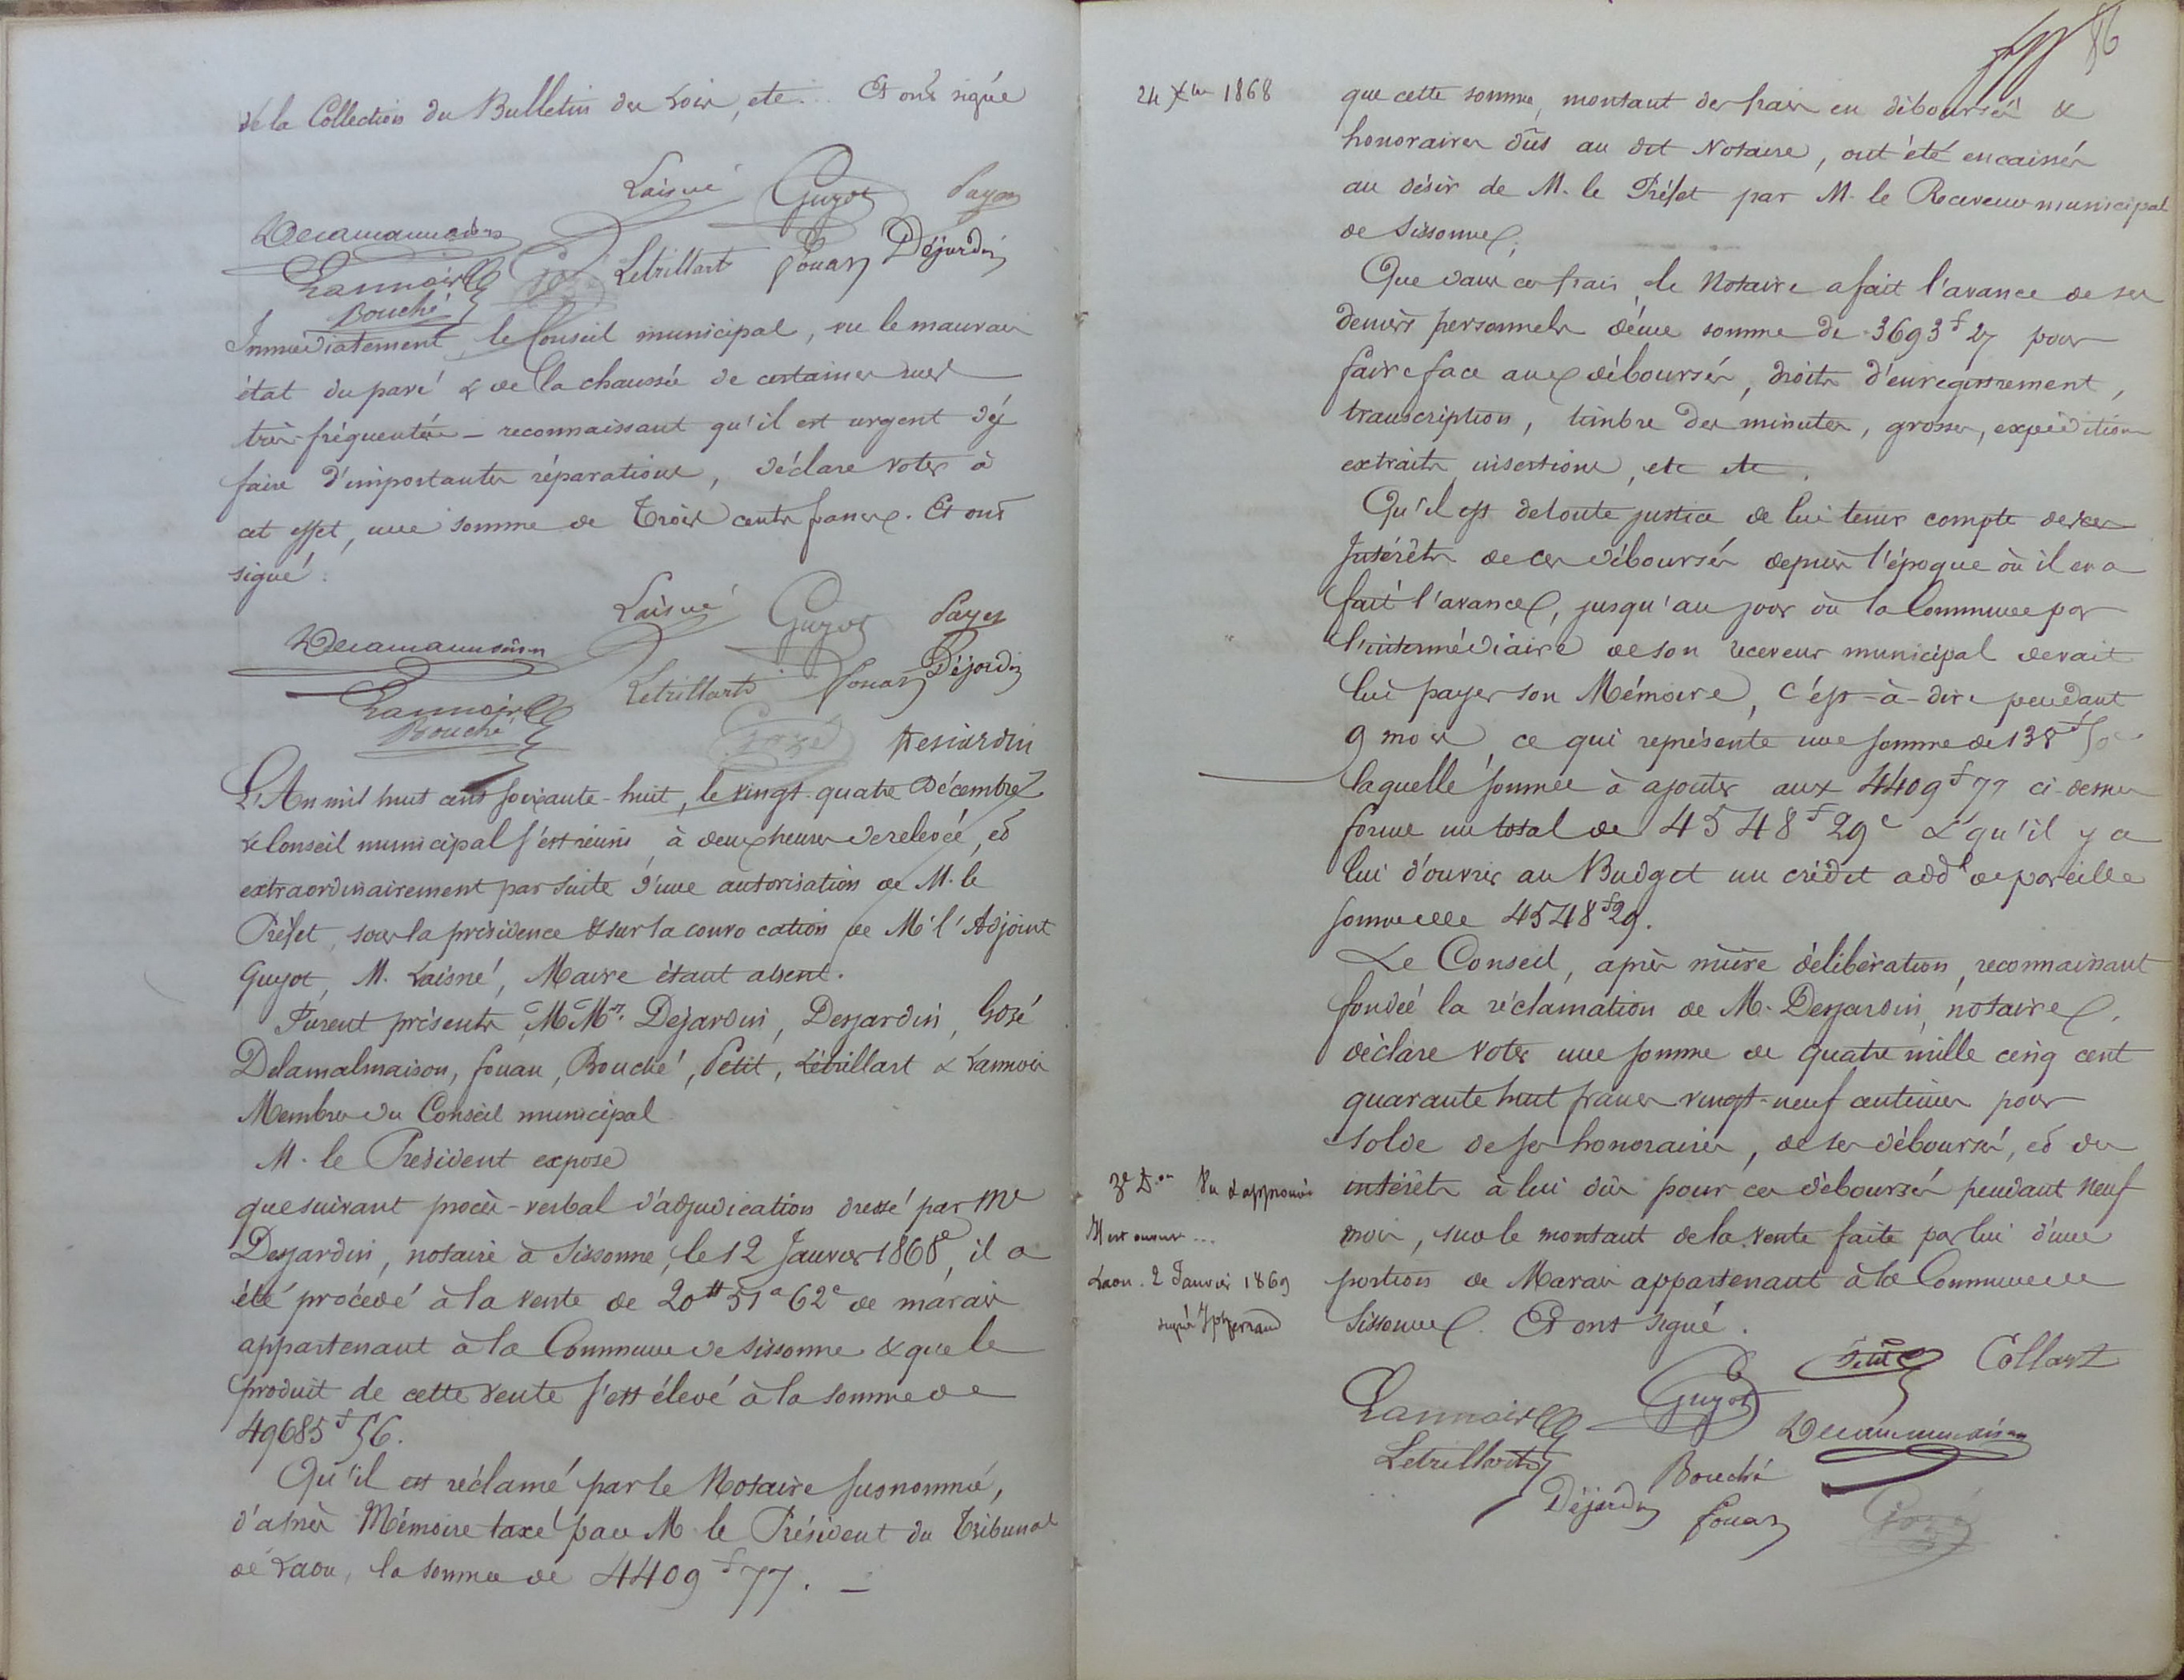 de la Collection du Bulletin des Lois, etc... Et ont signé
Laisné Guyot Payen
Delamalmaison
Lannois Gozé Letrillart Fouan Déjardin
Bouché
Immédiatement, le Conseil municipal, vu le mauvais
état du pavé & de la chaussée de certaines rues
très fréquentées – reconnaissant qu'il est urgent d'y
faire d'importantes réparations, déclare voter à
cet effet, une somme de Trois cents francs. Et ont
signé.
Laisné Guyot Payen
Delamalmaison Letrillart Fouan Déjardin
Lannois
Bouché Gozé Desjardin
L'An mil huit cent soixante-huit, le vingt-quatre Décembre
le Conseil municipal s'est réuni, à deux heures de relevée, et
extraordinairement par suite d'une autorisation de M. le
Préfet, sous la présidence & sur la convocation de M. l'Adjoint
Guyot, M. Laisné, Maire étant absent.
Furent présents, MMrs. Dejardin, Desjardin, Gozé
Delamalmaison, fouan, Bouché, Petit, Létrillart & Lannois
Membres du Conseil municipal
M. le Président expose
que suivant procès-verbal d'adjudication dressé par Me
Desjardin, notaire à Sissonne, le 12 Janvier 1868, il a
été procédé à la vente de 20H 51a 62c de marais
appartenant à la Commune de Sissonne & que le
produit de cette vente s'est élevé à la somme de
49685f 56.
Qu'il est réclamé par le Notaire susnommé,
d'après Mémoire taxé par M. le Président du Tribunal
de Laon, la somme de 4409f 77. –
86
24 Xbre 1868
que cette somme, montant des frais en déboursés &
honoraires dûs au dit Notaire, ont été encaissés
au désir de M. le Préfet par M. le Receveur municipal
de Sissonne;
Que dans ces frais, le Notaire a fait l'avance de ses
deniers personnels d'une somme de 3693f 27 pour
faire face aux déboursés, droits d'enregistrement,
transcription, timbre des minutes, grosses, expéditions
extraits, insertions, etc etc.
Qu'il est de toute justice de lui tenir compte des
Intérêts de ces déboursés depuis l'époque où il en a
fait l'avance, jusqu'au jour où la Commune par
l'intermédiaire de son receveur municipal devait
lui payer son Mémoire, c'est-à-dire pendant
9 mois, ce qui représente une somme de 138f 50
laquelle somme à ajouter aux 4409f 77 ci-dessus
forme un total de 4548f 29c & qu'il y a
lui d'ouvrir au Budget un crédit addel de pareille
somme de 4548f 29.
Le Conseil, après mûre délibération, reconnaissant
fondée la réclamation de M. Desjardin, notaire,
déclare voter une somme de quatre mille cinq cent
quarante huit francs vingt-neuf centimes pour
solde de ses honoraires, de ses déboursés, et des
intérêts à lui dûs pour ces déboursés pendant neuf
mois, sur le montant de la vente faite par lui d'une
portion de Marais appartenant à la Commune de
Sissonne. Et ont signé.
3e Don Vu & approuvé
Laon. 2 Janvier 1869
signé
Petit Collart
Lannois Guyot Delamalmaison
Letrillart Bouché
Déjardin Fouan Gozé